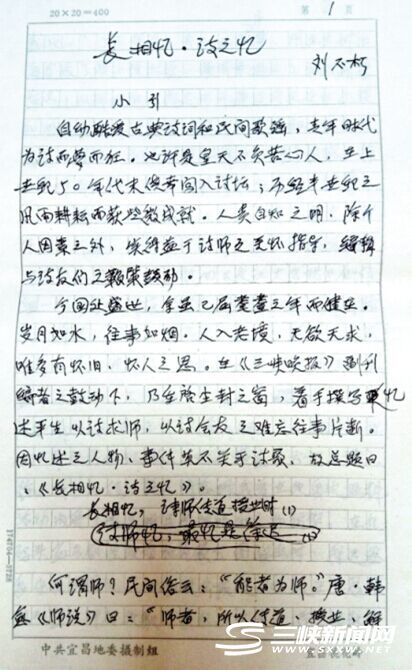 20×20=400
第 1 页
长相忆·诗之忆
刘不朽
小引
自幼酷爱古典诗词和民间歌谣，青年时代
为诗而梦而狂。也许是皇天不负苦心人，在上
世纪50年代末便有闯入诗坛；历经半世纪之
风雨耕耘而获些微成就。人贵自知之明，除个
人因素之外，实得益于诗师之关怀指导，编辑
与诗友们之鞭策鼓励。
今国处盛世，余虽已届耄耋之年而健在。
岁月如水，往事如烟。人入老境，无欲无求，
唯多有怀旧、怀人之思。在《三峡晚报》副刊
编者之鼓动下，乃至除尘封之窗，着手撰写忆
述平生以诗求师，以诗会友之难忘往事片断。
因忆述之人物、事件无不关于诗歌，故总题曰
：《长相忆·诗之忆》。
长相忆，诗师传道授业时(1)
诗师忆，最忆是徐迟(1)
何谓师？民间俗云：“能者为师。”唐·韩
愈《师说》曰：“师者，所以传道、授业、解
中共宜昌地委摄制组
三峡新闻网